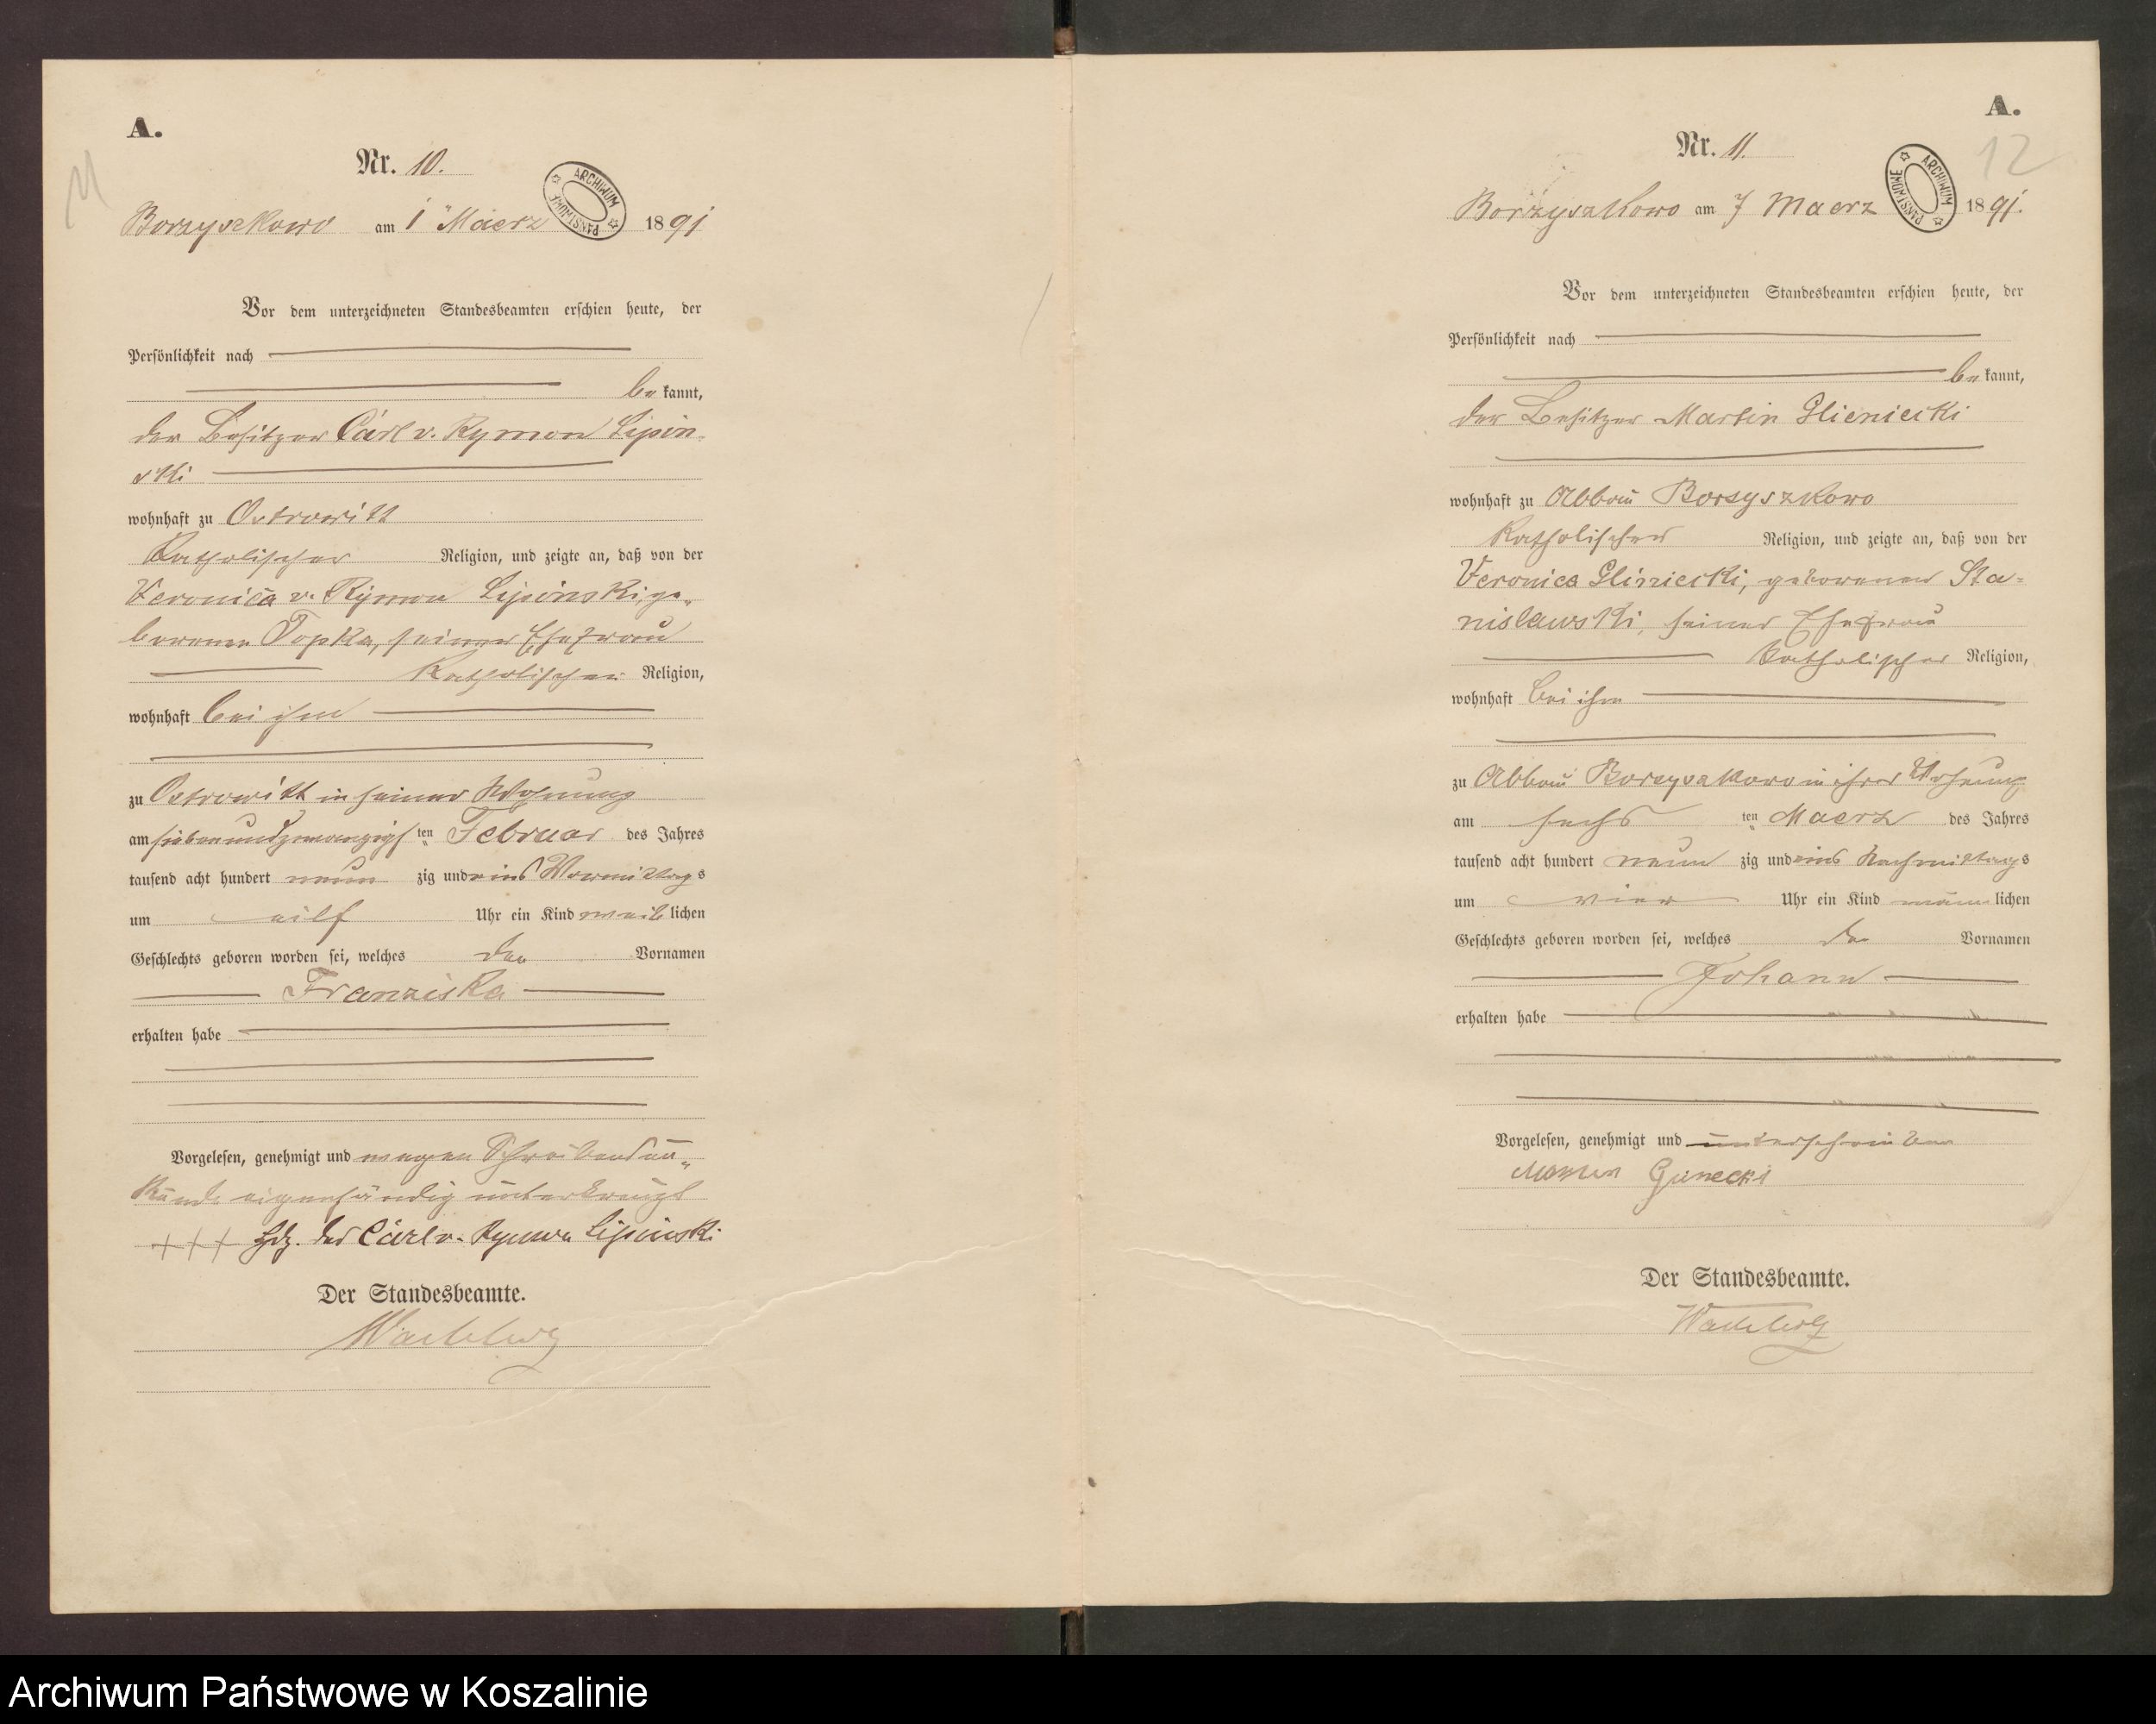 A.
11
Nr. 10.
ARCHIWUM PAŃSTWOWE
Borzyszkowo am 1 Maerz 1891
Vor dem unterzeichneten Standesbeamten erschien heute, der
Persönlichkeit nach
be kannt,
der Besitzer Carl v. Rymon Lipin-
ski
wohnhaft zu Ostrowitt
Katholischer Religion, und zeigte an, daß von der
Veronica v. Rymon Lipinski, ge-
borenen Topka, seiner Ehefrau
Katholischer Religion,
wohnhaft bei ihm
zu Ostrowitt in seiner Wohnung
am siebenundzwanzigs ten Februar des Jahres
tausend acht hundert neun zig und eins Vormittags
um eilf Uhr ein Kind weib lichen
Geschlechts geboren worden sei, welches den Vornamen
Franziska
erhalten habe
Vorgelesen, genehmigt und wegen Schreibensun-
kunde eigenhändig unterkreuzt
+++ Hdz. des Carl v. Rymon Lipinski
Der Standesbeamte.
A.
12
Nr. 11.
ARCHIWUM PAŃSTWOWE
Borzyszkowo am 7 Maerz 1891.
Vor dem unterzeichneten Standesbeamten erschien heute, der
Persönlichkeit nach
be kannt,
der Besitzer Martin Glieniecki
wohnhaft zu Abbau Borzyszkowo
Katholischer Religion, und zeigte an, daß von der
Veronica Gliniecki, geborenen Sta-
nislawski, seiner Ehefrau
Katholischer Religion,
wohnhaft bei ihm
zu Abbau Borzyszkowo in ihrer Wohnung
am sechs ten Maerz des Jahres
tausend acht hundert neun zig und eins Nachmittags
um vier Uhr ein Kind männ lichen
Geschlechts geboren worden sei, welches den Vornamen
Johann
erhalten habe
Vorgelesen, genehmigt und unterschrieben
Der Standesbeamte.
Archiwum Państwowe w Koszalinie